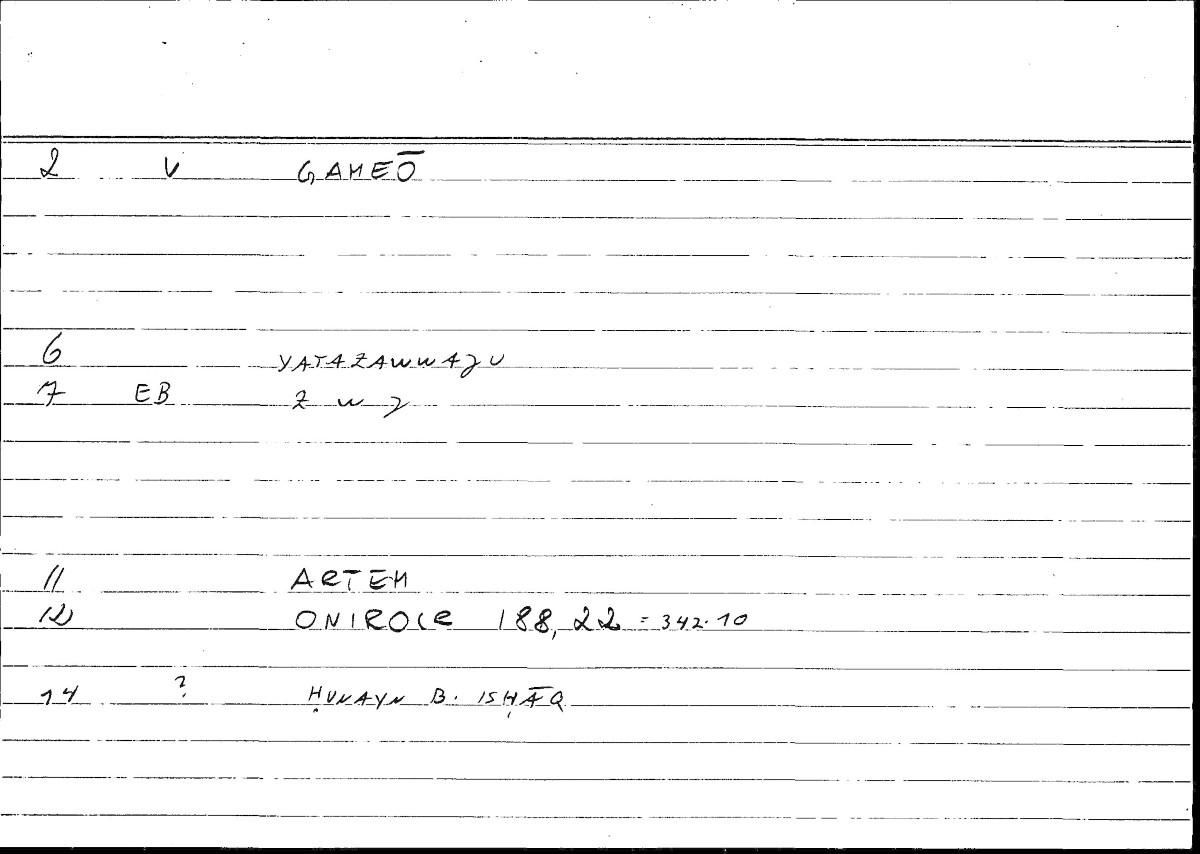 2 V GAMEŌ
6 YATAZAWWAJU
7 EB Z W J
11 ARTEM
12 ONIROCR 188,22 = 342.10
14 ? ḤUNAYN B. ISḤĀQ